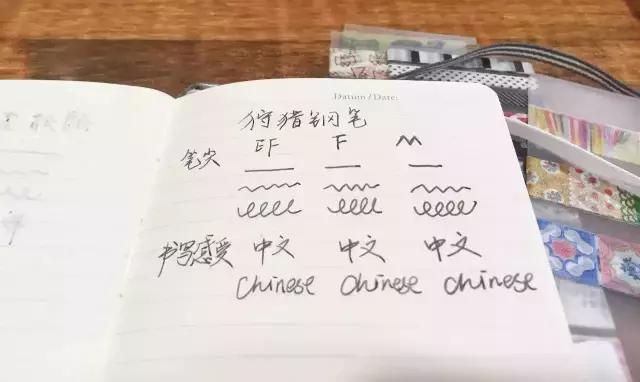 Datum / Date:
狩猎钢笔
笔尖 EF F M
书写感受 中文 中文 中文
Chinese Chinese Chinese